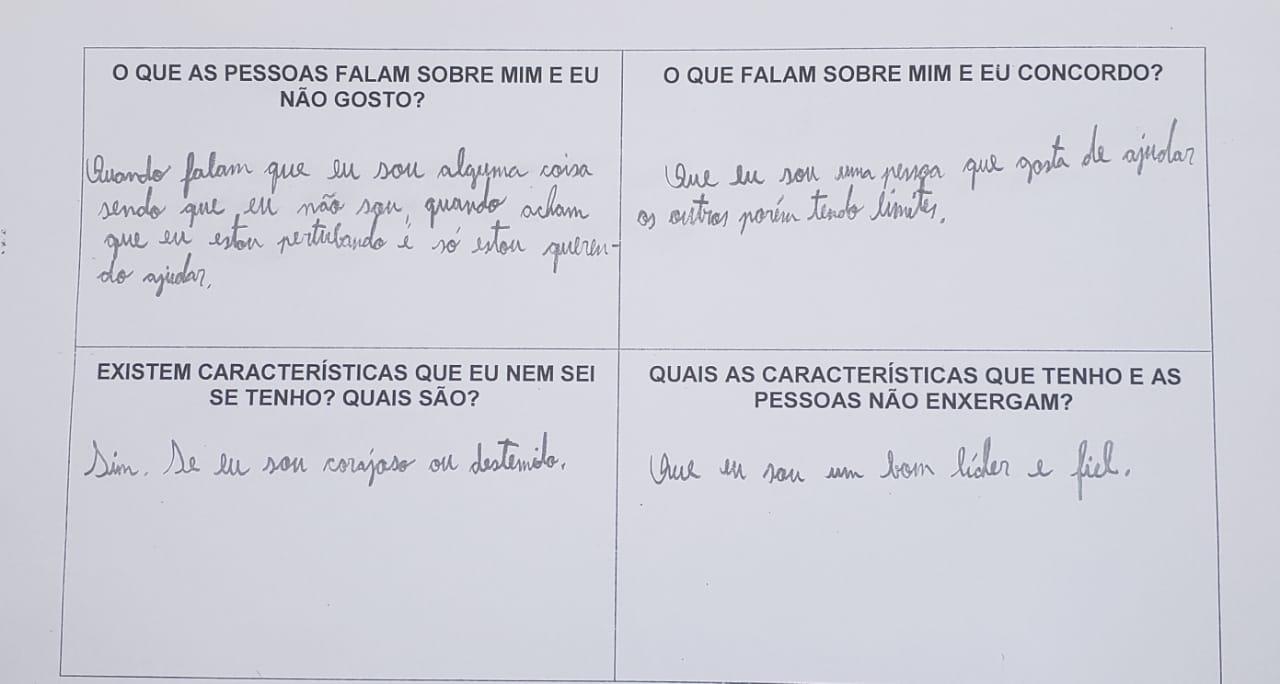 O QUE AS PESSOAS FALAM SOBRE MIM E EU
NÃO GOSTO?
Quando falam que eu sou alguma coisa
sendo que eu não sou, quando acham
que eu estou pertubando é só estou queren-
do ajudar.
O QUE FALAM SOBRE MIM E EU CONCORDO?
Que eu sou uma pessoa que gosta de ajudar
os outros porém tendo limites.
EXISTEM CARACTERÍSTICAS QUE EU NEM SEI
SE TENHO? QUAIS SÃO?
Sim. Se eu sou corajoso ou destemido.
QUAIS AS CARACTERÍSTICAS QUE TENHO E AS
PESSOAS NÃO ENXERGAM?
Que eu sou um bom líder e fiel.